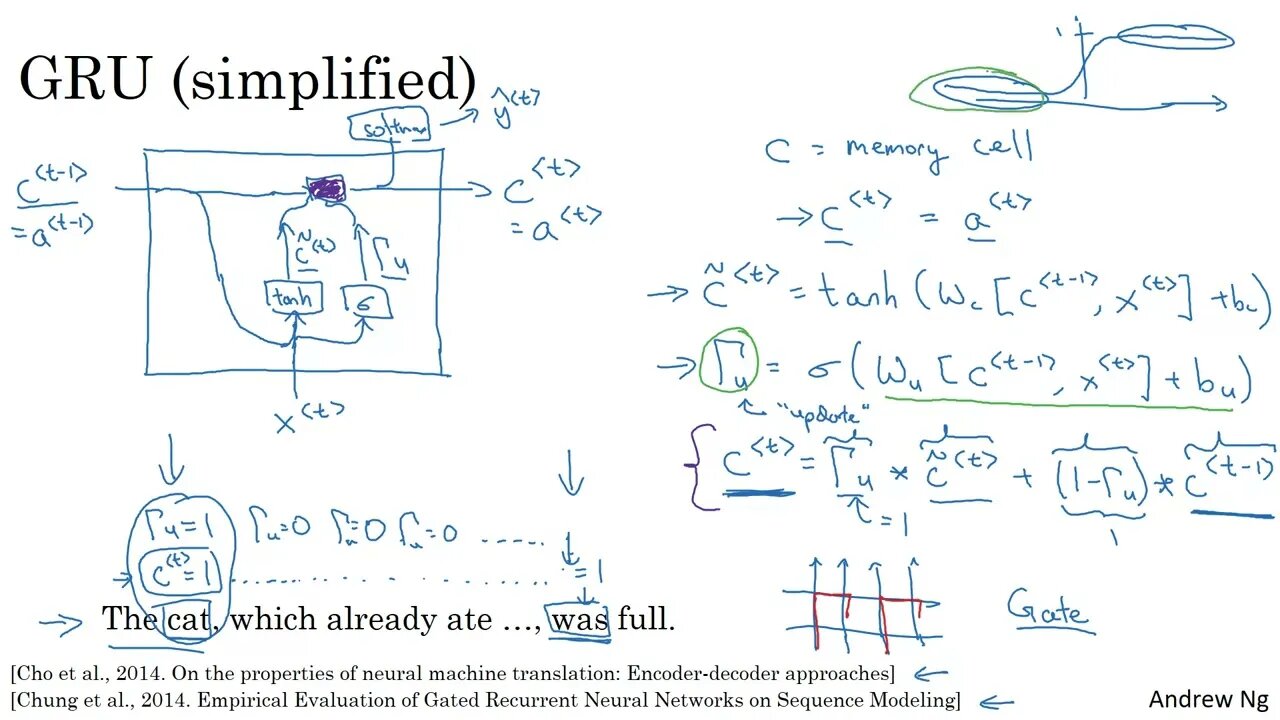 GRU (simplified)
softmax → ŷ<t>
c<t-1>
= a<t-1>
c<t>
= a<t>
c̃<t>
Γu
tanh
σ
x<t>
1
c = memory cell
→ c<t> = a<t>
→ c̃<t> = tanh (Wc [c<t-1>, x<t>] + bc)
→ Γu = σ (Wu [c<t-1>, x<t>] + bu)
"update"
c<t> = Γu * c̃<t> + (1-Γu) * c<t-1>
= 1
1
Γu=1 Γu=0 Γu=0 Γu=0 .....
→ c<t>=1 .......... = 1
→ The cat, which already ate …, was full.
Gate
[Cho et al., 2014. On the properties of neural machine translation: Encoder-decoder approaches] ←
[Chung et al., 2014. Empirical Evaluation of Gated Recurrent Neural Networks on Sequence Modeling] ←
Andrew Ng